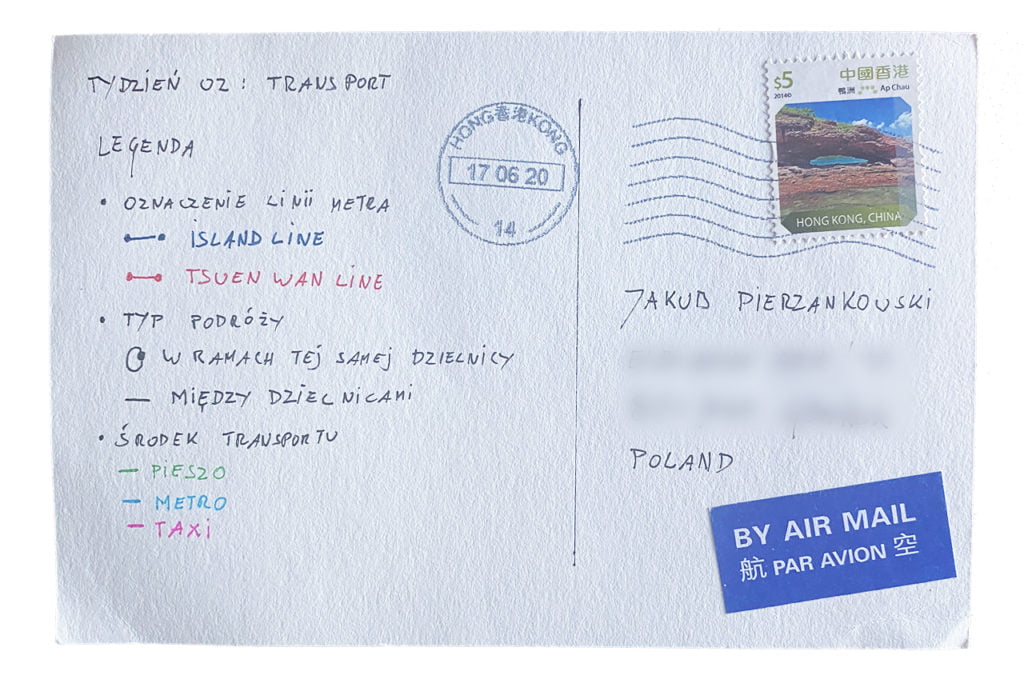 TYDZIEŃ 02: TRANSPORT
LEGENDA
• OZNACZENIE LINII METRA
ISLAND LINE
TSUEN WAN LINE
• TYP PODRÓŻY
W RAMACH TEJ SAMEJ DZIELNICY
— MIĘDZY DZIELNICAMI
• ŚRODEK TRANSPORTU
— PIESZO
— METRO
— TAXI
HONG香港KONG
17 06 20
14
$5
2014
中國香港
鴨洲 Ap Chau
HONG KONG, CHINA
JAKUB PIERZANKOWSKI
POLAND
BY AIR MAIL
航 PAR AVION 空